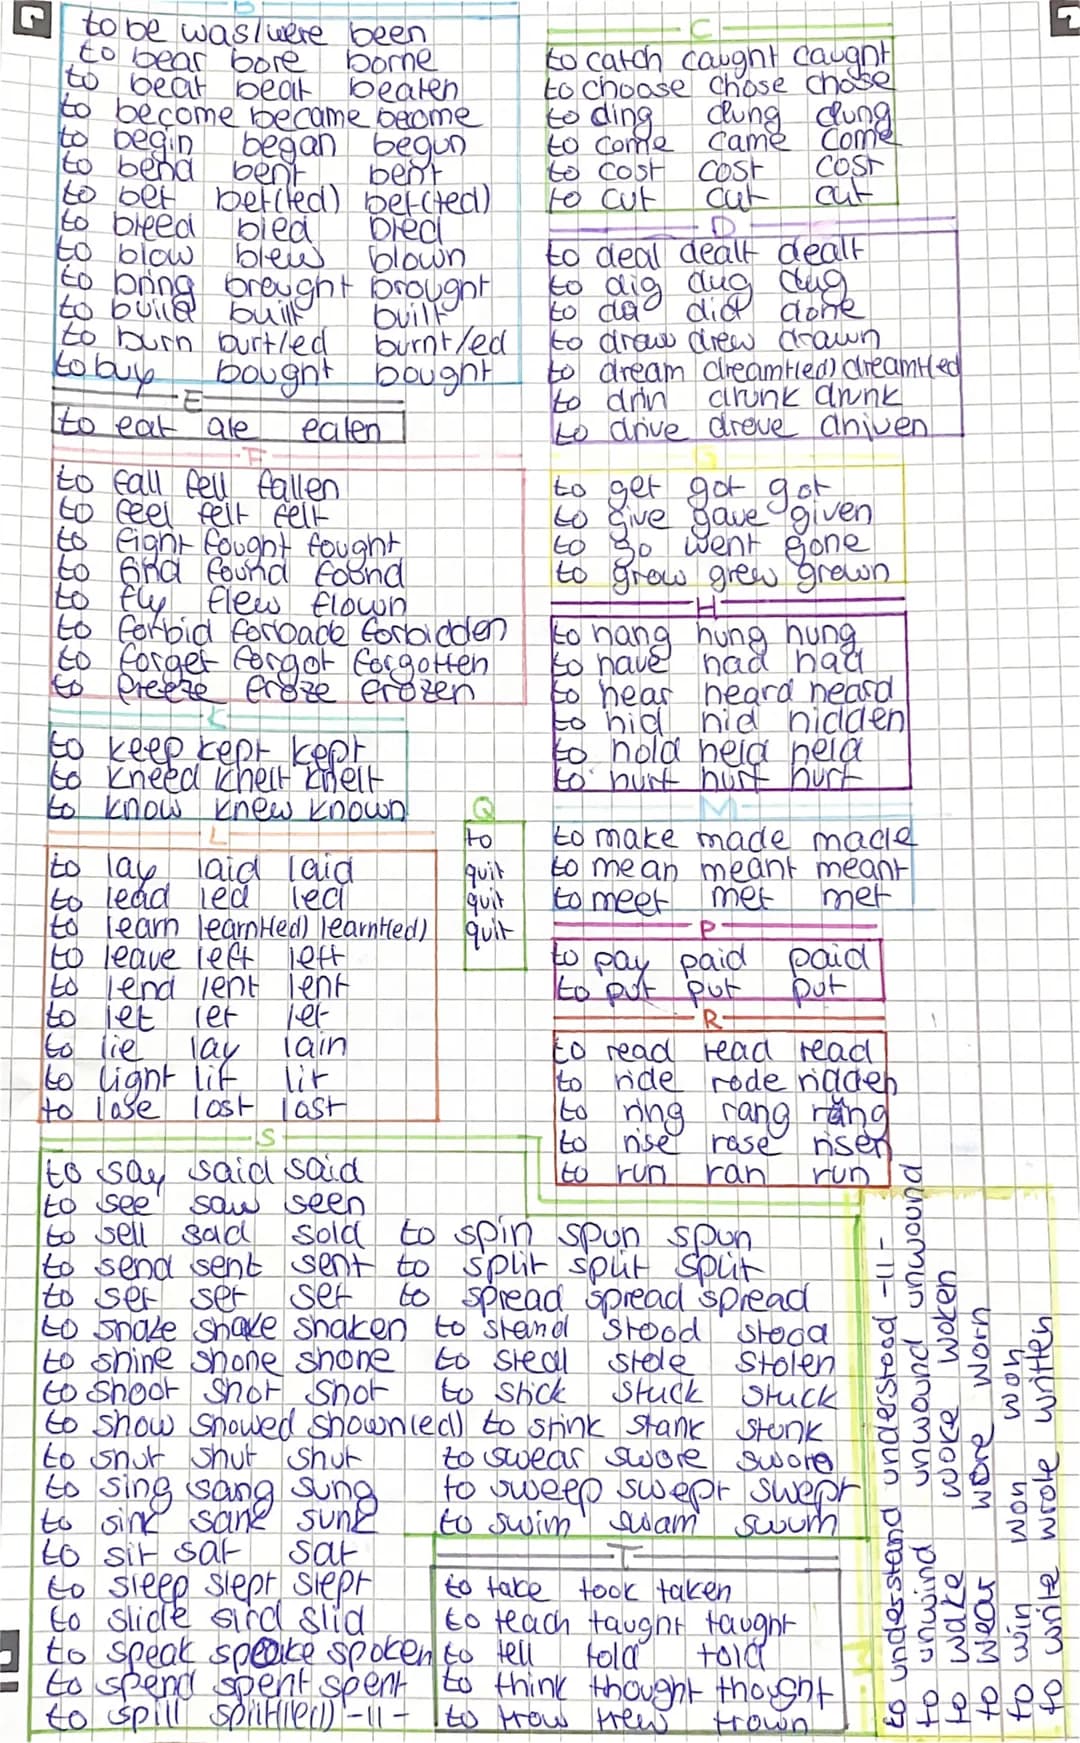 B
to be was/were been
to bear bore borne
to beat beat beaten
to become became become
to begin began begun
to bend bent bent
to bet bet(ted) bet(ted)
to bleed bled bled
to blow blew blown
to bring brought brought
to build built built
to burn burt/ed burnt/ed
to buy bought bought
E
to eat ate eaten
F
to fall fell fallen
to feel felt felt
to fight fought fought
to find found found
to fly flew flown
to forbid forbade forbidden
to forget forgot forgotten
to freeze froze frozen
K
to keep kept kept
to kneed knelt knelt
to know knew known
L
to lay laid laid
to lead led led
to learn learnt(ed) learnt(ed)
to leave left left
to lend lent lent
to let let let
to lie lay lain
to light lit lit
to lose lost lost
Q
to
quit
quit
quit
C
to catch caught caught
to choose chose chose
to cling clung clung
to come came come
to cost cost cost
to cut cut cut
D
to deal dealt dealt
to dig dug dug
to do did done
to draw drew drawn
to dream dreamt(ed) dreamt(ed
to drin drunk drunk
to drive drove driven
G
to get got got
to give gave given
to go went gone
to grow grew grown
H
to hang hung hung
to have had had
to hear heard heard
to hid hid hidden
to hold held held
to hurt hurt hurt
M
to make made made
to mean meant meant
to meet met met
P
to pay paid paid
to put put put
R
to read read read
to ride rode ridden
to ring rang rung
to rise rose risen
to run ran run
S
to say said said
to see saw seen
to sell sold sold to spin spun spun
to send sent sent to split split split
to set set set to spread spread spread
to shake shake shaken to stand stood stood
to shine shone shone to steal stole stolen
to shoot shot shot to stick stuck stuck
to show showed shown(ed) to stink stank stunk
to shut shut shut to swear swore swore
to sing sang sung to sweep swept swept
to sink sank sunk to swim swam swum
to sit sat sat
to sleep slept slept
to slide slid slid
to speak spoke spoken
to spend spent spent
to spill spilt(led) -11-
T
to take took taken
to teach taught taught
to tell told told
to think thought thought
to trow trew trown
to undestand understood -11-
to unwind unwound unwound
to wake woke woken
to wear wore worn
to win won won
to write wrote written